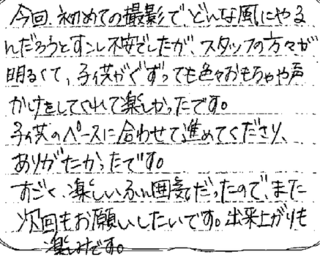 今回、初めての撮影で、どんな風にやる
んだろうとすこし不安でしたが、スタッフの方々が
明るくて、子供がぐずっても色々おもちゃや声
かけをしてくれて楽しかったです。
子供のペースに合わせて進めてくださり、
ありがたかったです。
すごく、楽しいふん囲気だったので、また
次回もお願いしたいです。出来上がりも
楽しみです。